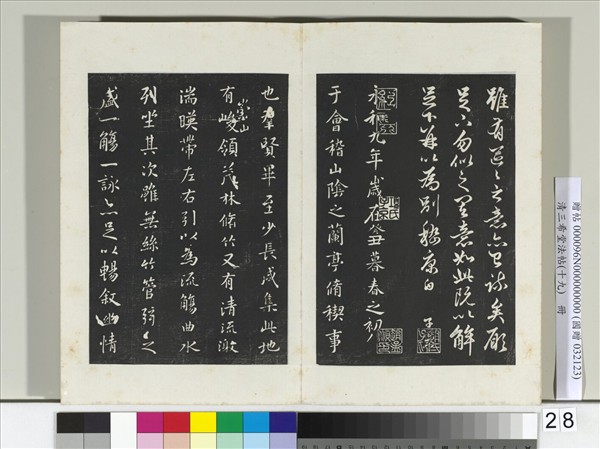 雖有區〻之意亦已疏矣願
足下勿似之其意如此既以解
足下并以為別嵇康白
永和九年歲在癸丑暮春之初
于會稽山陰之蘭亭脩禊事
也羣賢畢至少長咸集此地
有崇山峻領茂林脩竹又有清流激
湍暎帶左右引以為流觴曲水
列坐其次雖無絲竹管弦之
盛一觴一詠亦足以暢敘幽情
贈帖 000096N000000000 (國贈 032123)
清三希堂法帖(十九) 冊
28